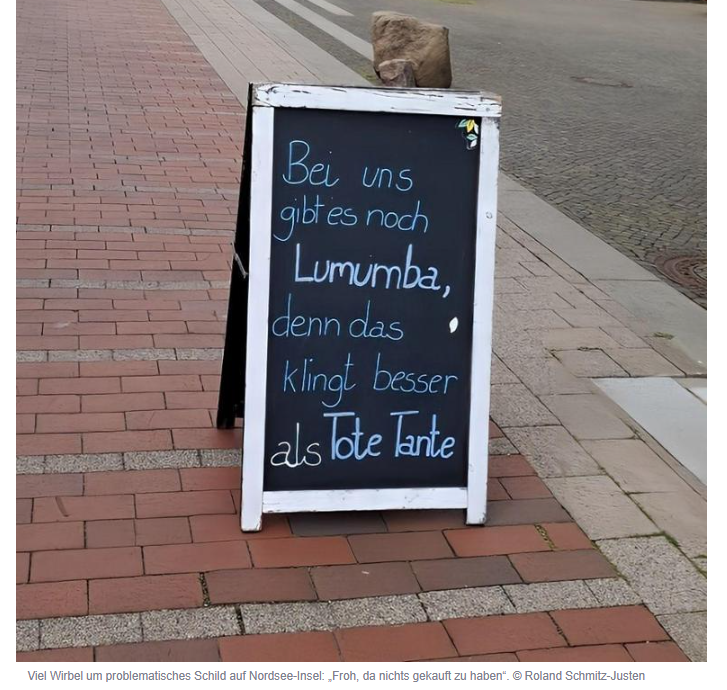 Bei uns
gibt es noch
Lumumba,
denn das
klingt besser
als Tote Tante
Viel Wirbel um problematisches Schild auf Nordsee-Insel: „Froh, da nichts gekauft zu haben“. © Roland Schmitz-Justen